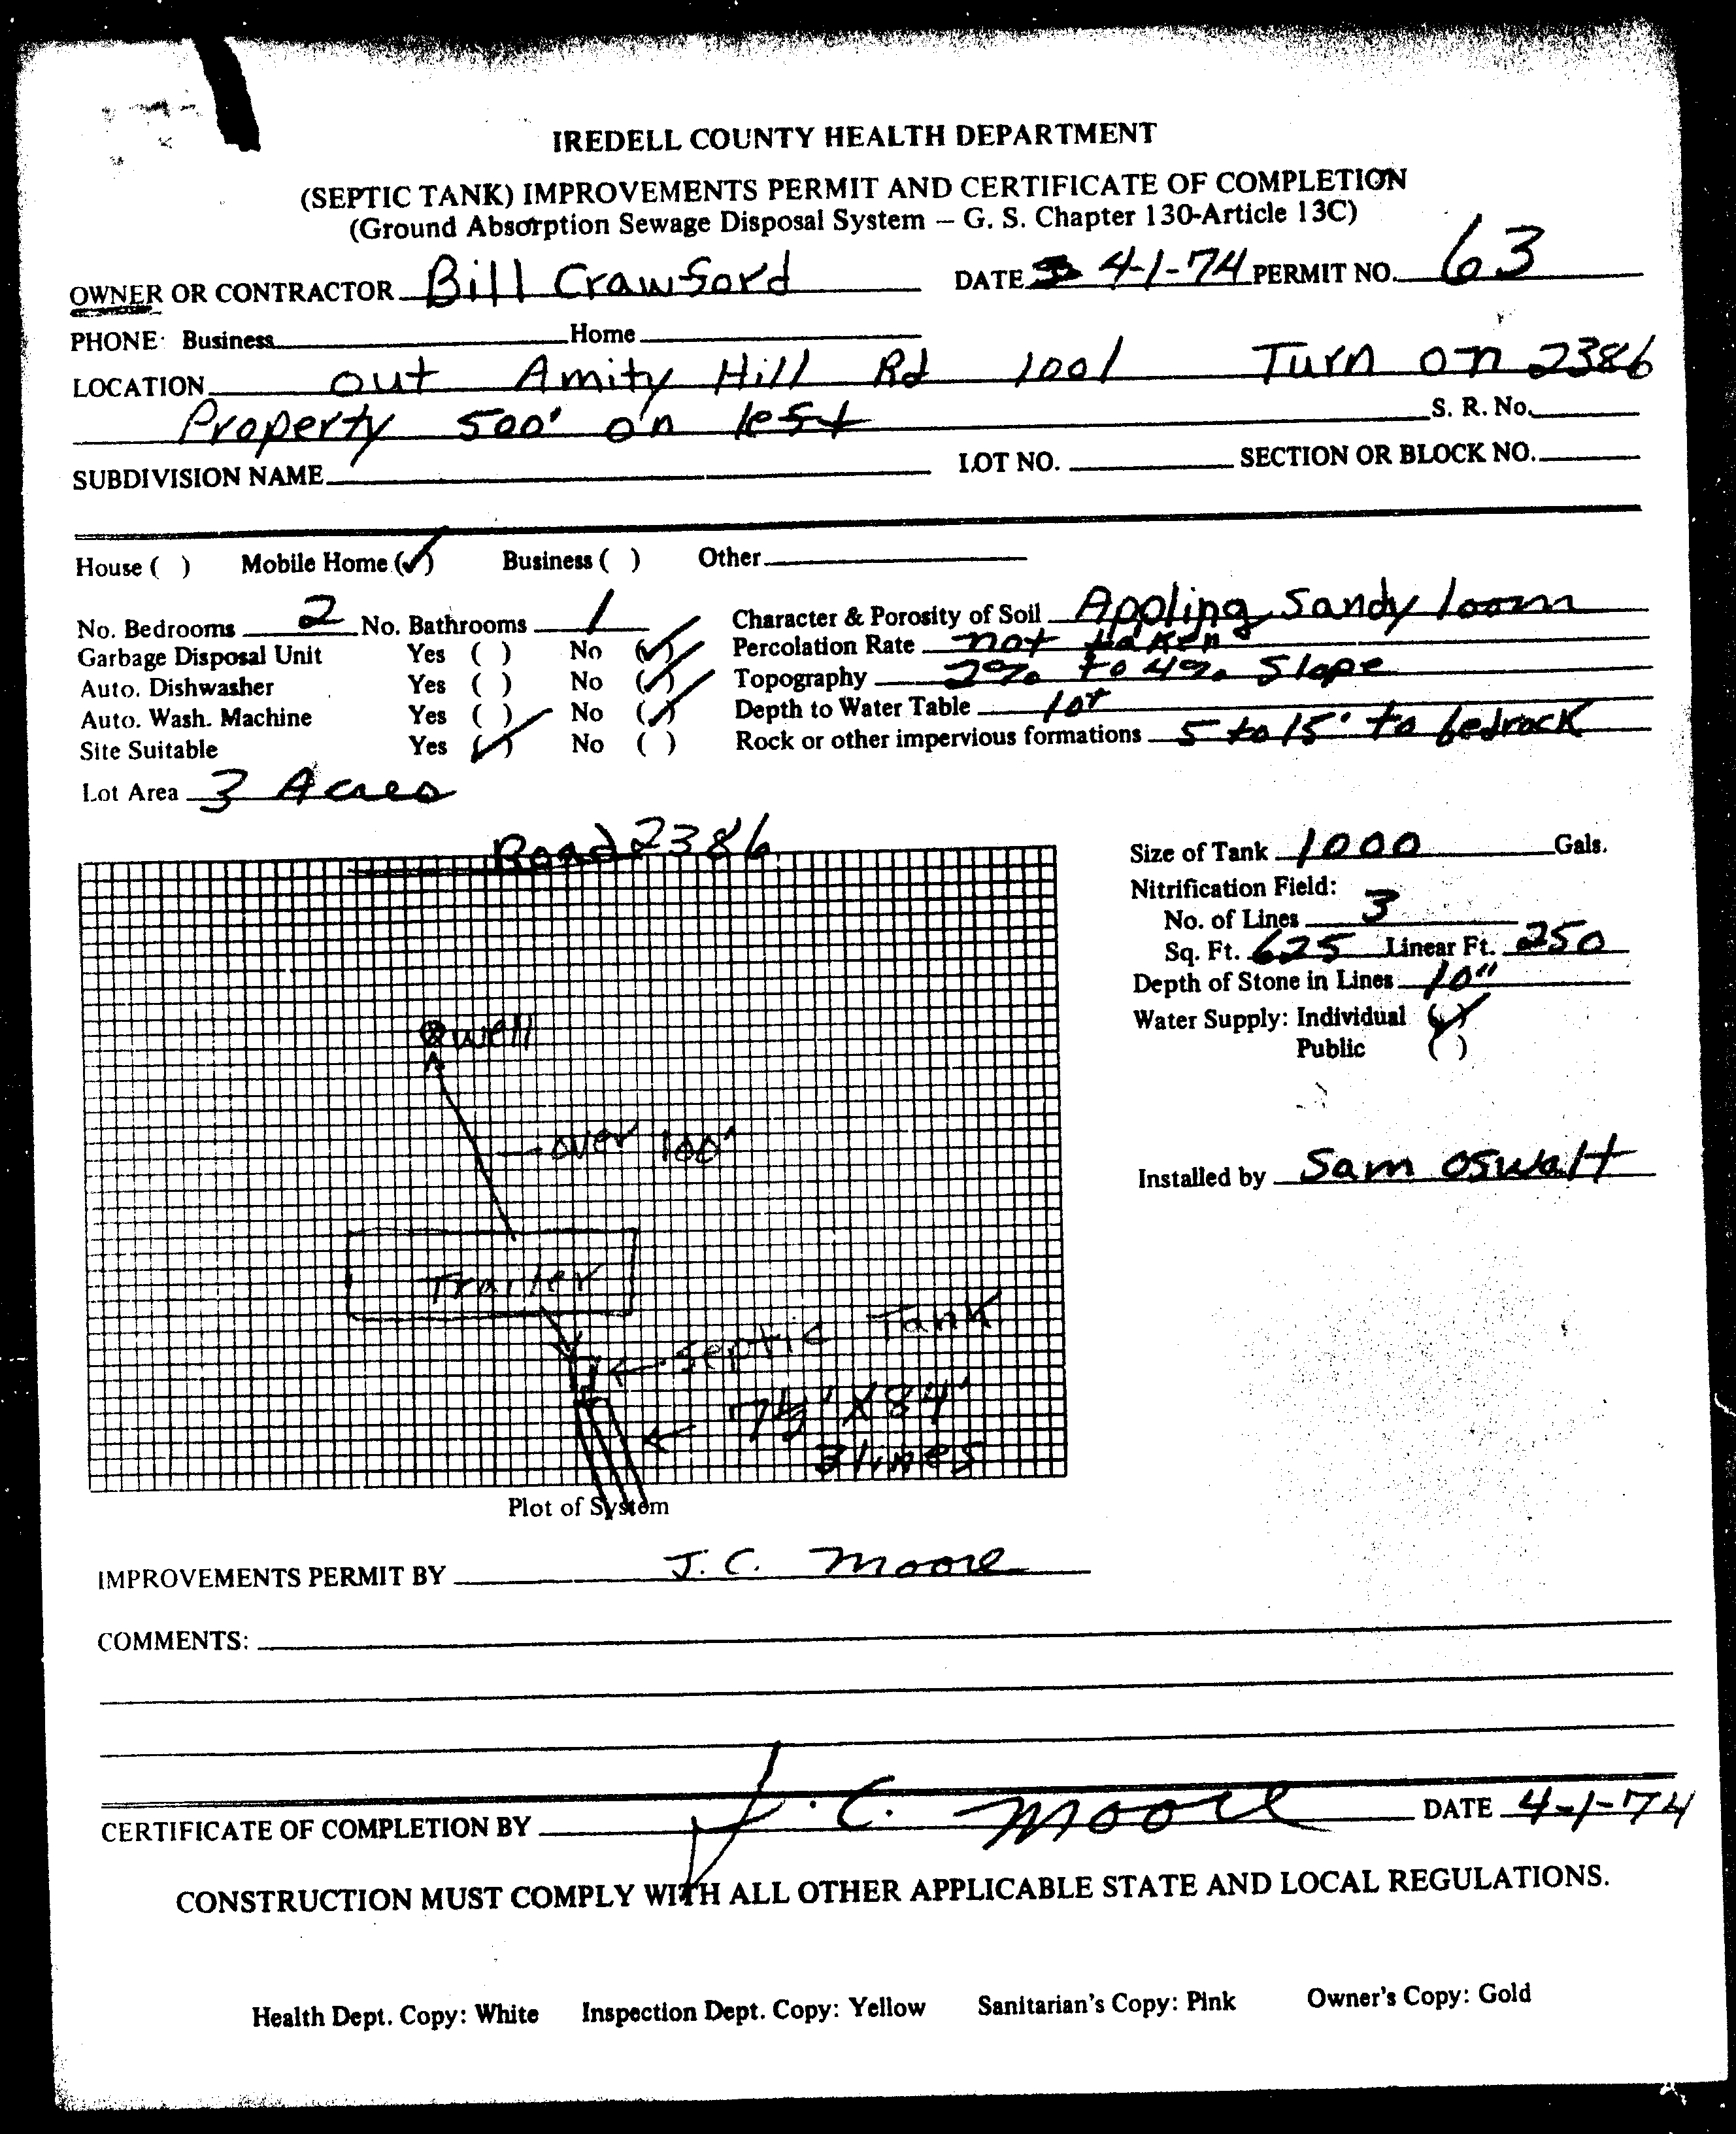 IREDELL COUNTY HEALTH DEPARTMENT
(SEPTIC TANK) IMPROVEMENTS PERMIT AND CERTIFICATE OF COMPLETION
(Ground Absorption Sewage Disposal System – G. S. Chapter 130-Article 13C)
OWNER OR CONTRACTOR Bill Crawford DATE 4-1-74 PERMIT NO. 63
PHONE: Business Home
LOCATION out Amity Hill Rd 1001 Turn on 2386
Property 500' on left S. R. No.
SUBDIVISION NAME LOT NO. SECTION OR BLOCK NO.
House ( ) Mobile Home (✓) Business ( ) Other
No. Bedrooms 2 No. Bathrooms 1 Character & Porosity of Soil Appling Sandy loam
Garbage Disposal Unit Yes ( ) No (✓) Percolation Rate not taken
Auto. Dishwasher Yes ( ) No (✓) Topography 2% to 4% Slope
Auto. Wash. Machine Yes ( ) No (✓) Depth to Water Table 10+
Site Suitable Yes (✓) No ( ) Rock or other impervious formations 5 to 15' to bedrock
Lot Area 3 Acres
Road 2386
Size of Tank 1000 Gals.
Nitrification Field:
No. of Lines 3
Sq. Ft. 625 Linear Ft. 250
Depth of Stone in Lines 10"
Water Supply: Individual (✓)
Public ( )
well
over 100'
Installed by Sam Oswalt
Trailer
Septic Tank
7½' X 84'
3 lines
Plot of System
IMPROVEMENTS PERMIT BY J. C. Moore
COMMENTS:
CERTIFICATE OF COMPLETION BY J. C. Moore DATE 4-1-74
CONSTRUCTION MUST COMPLY WITH ALL OTHER APPLICABLE STATE AND LOCAL REGULATIONS.
Health Dept. Copy: White Inspection Dept. Copy: Yellow Sanitarian's Copy: Pink Owner's Copy: Gold